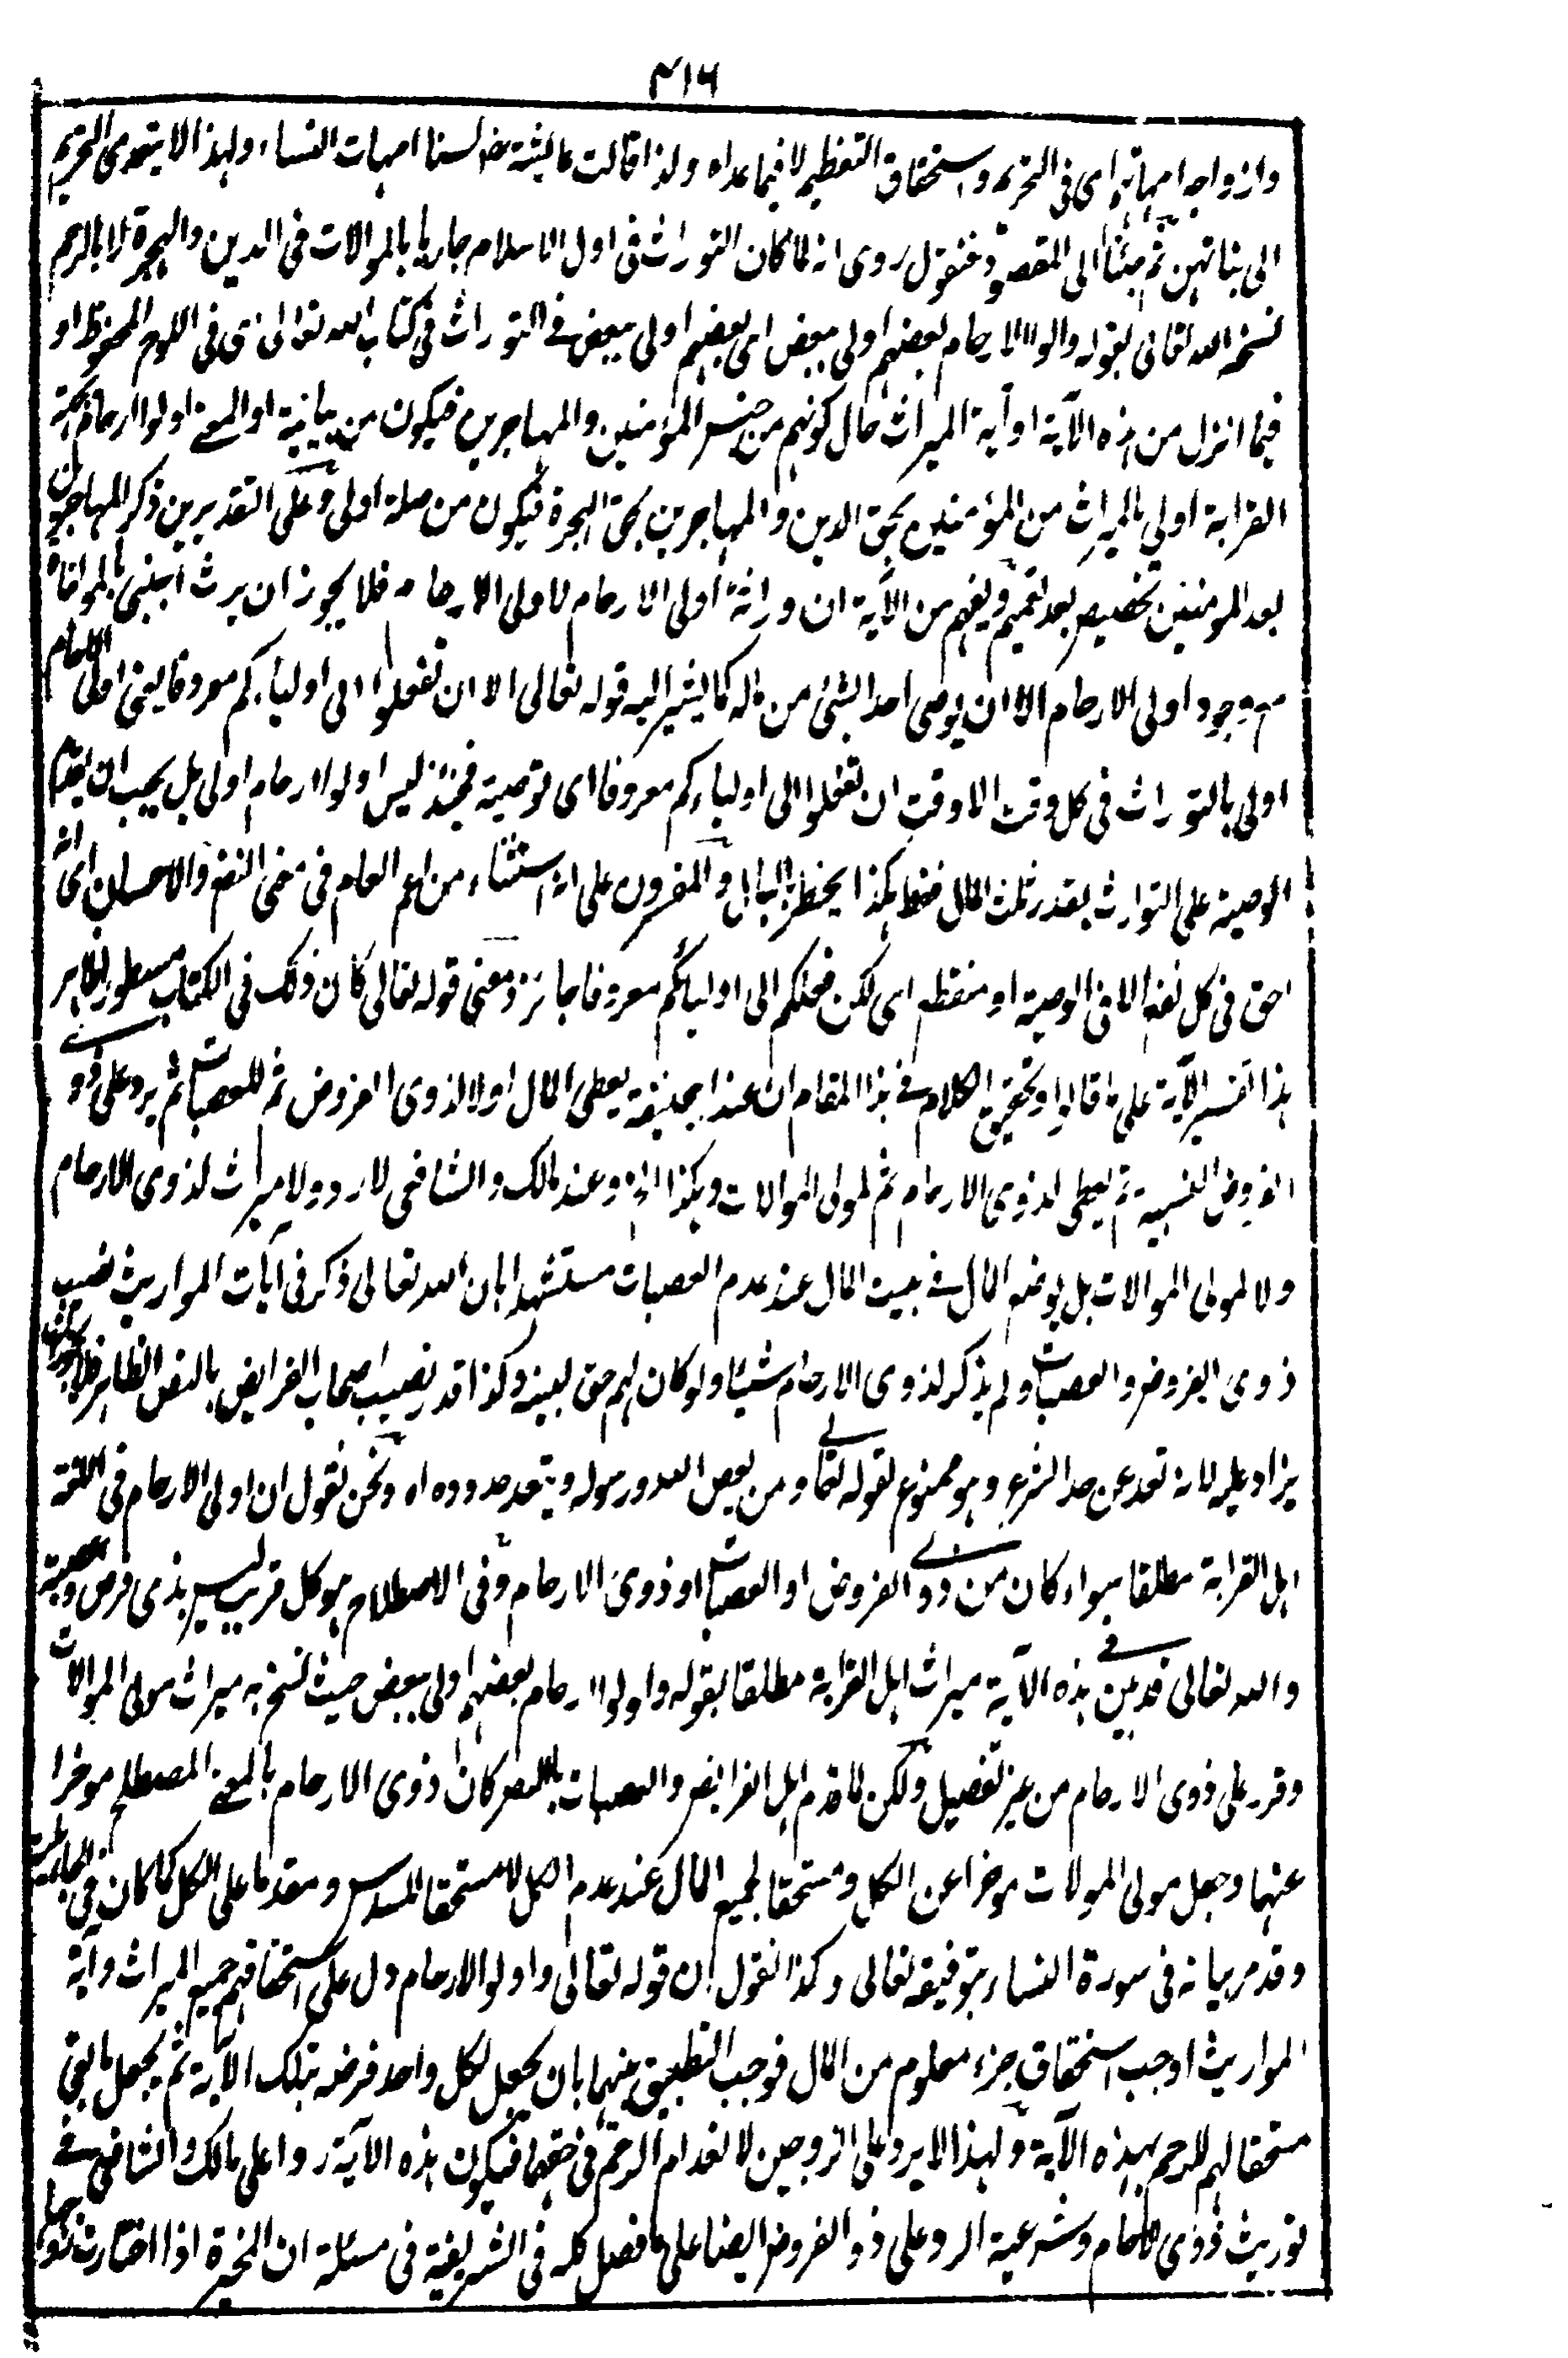 ٤١٦
وازواجه امهاتهم اى فى التحريم واستحقاق التعظيم لا فيما عداه ولذا قالت عائشة رض لسنا امهات النساء ولهذا لا يتعدى التحريم
الى بناتهن ثم جئنا الى المقصود فنقول روى انه لما كان التوارث فى اول الاسلام جاريا بالموالات فى الدين والهجرة لا بالرحم
نسخه الله تعالى بقوله واولوا الارحام بعضهم اولى ببعض اى بعضهم اولى ببعض فى التوارث فى كتاب الله تعالى اى فى اللوح المحفوظ او
فيما انزل من هذه الآية او آية الميراث حال كونهم من جنس المؤمنين والمهاجرين فيكون من بيانية او المعنى اولوا الارحام بحق
القرابة اولى بالميراث من المؤمنين بحق الدين والمهاجرين بحق الهجرة فيكون من صلة اولى وعلى التقديرين ذكر المهاجرين
بعد المؤمنين تخصيص بعد تعميم ويفهم من الآية ان وراثة اولى الارحام لاولى الارحام فلا يجوز ان يرث اجنبى بالموالاة
مع وجود اولى الارحام الا ان يوصى احد بشئ من ماله كما يشير اليه قوله تعالى الا ان تفعلوا الى اولياءكم معروفا يعنى اولى الارحام
اولى بالتوارث فى كل وقت الا وقت ان تفعلوا الى اولياءكم معروفا اى توصية فحينئذ ليس اولوا الارحام اولى بل يجب ان يقدم
الوصية على التوارث بقدر ثلث المال فقط هكذا يخطر بالبال والمفسرون على انه استثناء من اعم العام فى معنى النفع والاحسان اى انه
احق فى كل نفع الا فى الوصية او منقطع اى لكن فعلكم الى اوليائكم معروفا جائز ومعنى قوله تعالى كان ذلك فى الكتاب مسطورا ظاهر
هذا تفسير الآية على ما قالوا وتحقيق الكلام فى هذا المقام ان عند ابيحنيفة يعطى المال اولا لذوى الفروض ثم للعصبات ثم يرد على ذوى
الفروض النسبية ثم يعطى لذوى الارحام ثم لمولى الموالات وهكذا الخ وعند مالك والشافعى لا رد ولا ميراث لذوى الارحام
ولا لمولى الموالات بل يوضع المال فى بيت المال عند عدم العصبات مستشهدا بان الله تعالى ذكر فى آيات المواريث نصيب
ذوى الفروض والعصبات ولم يذكر لذوى الارحام شيئا ولو كان لهم حق لبينه وكذا قدر نصيب اصحاب الفرايض بالنص الظاهر فلا يجوز ان
يزاد عليه لانه تعد عن حد الشرع وهو ممنوع لقوله تعالى ومن يعص الله ورسوله ويتعد حدوده اه ونحن نقول ان اولى الارحام فى اللغة
اهل القرابة مطلقا سواء كان من ذوى الفروض او العصبات او ذوى الارحام وفى الاصطلاح هو كل قريب ليس بذى فرض وعصبة
والله تعالى قد بين فى هذه الآية ميراث اهل القرابة مطلقا بقوله واولوا الارحام بعضهم اولى ببعض حيث نسخ به ميراث مولى الموالات
وقرر على ذوى الارحام من غير تفصيل ولكن لما قدم اهل الفرايض والعصبات بالنص كان ذوى الارحام بالمعنى المصطلح موخرا
عنها وجعل مولى المولات موخرا عن الكل ومستحقا لجميع المال عند عدم الكل لا مستحقا للسدس ومقدما على الكل كما كان فى الجاهلية
وقد مر بيانه فى سورة النساء بتوفيقه تعالى وكذا نقول ان قوله تعالى واولوا الارحام دل على استحقاقهم جميع الميراث وآية
المواريث اوجب استحقاق جزء معلوم من المال فوجب التطبيق منهما بان يجعل لكل واحد فرضه بتلك الآية ثم يجعل ما بقى
مستحقا لهم للرحم بهذه الآية ولهذا لا يرد على الزوجين لانعدام الرحم فى حقهما فيكون هذه الآية ردا على مالك والشافعى فى
توريث ذوى الارحام وشرعية الرد على ذوا الفروض ايضا على ما فصل كله فى الشريفية فى مسئلة ان المخيرة اذا اختارت زوجها